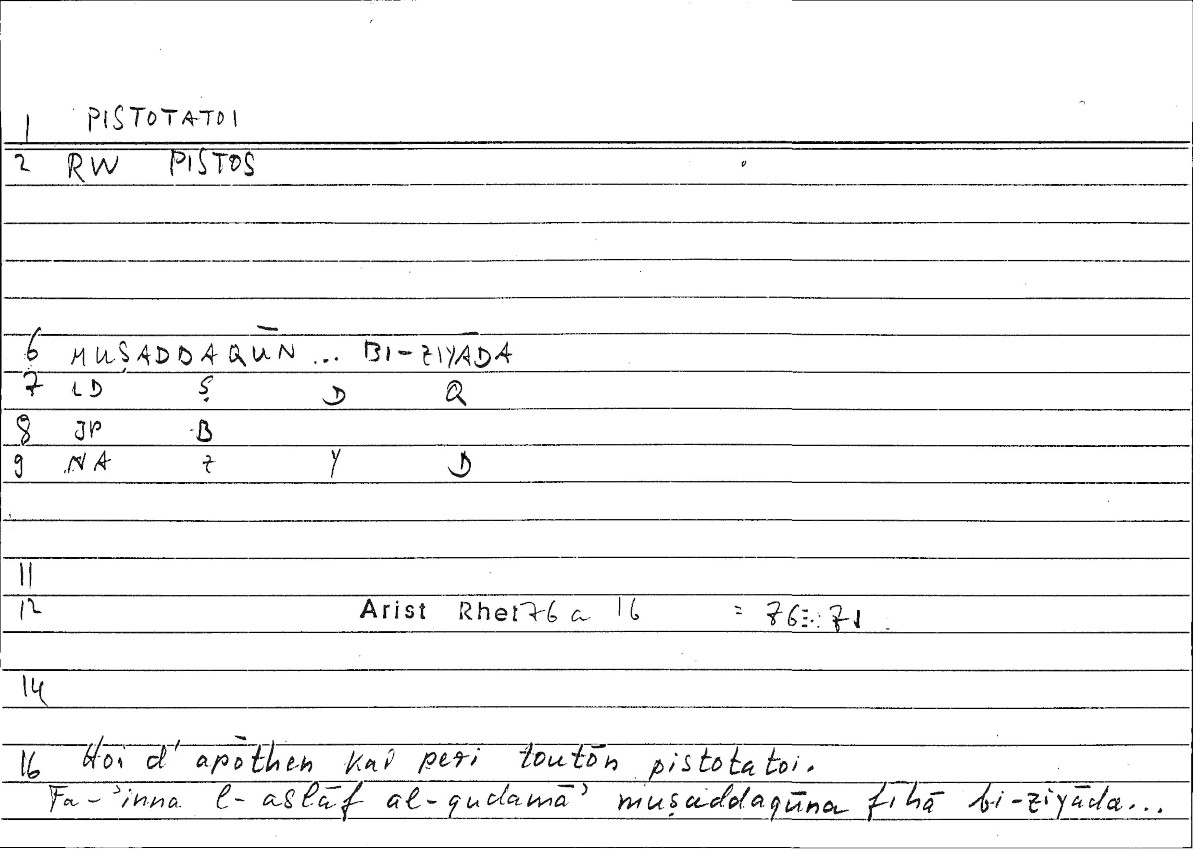 1 PISTOTATOI
2 RW PISTOS
6 MUṢADDAQŪN ... BI-ZIYĀDA
7 LD Ṣ D Q
8 JP B
9 NA Z Y D
11
12 Arist Rhet 76 a 16 = 76
14
16 Hoi d' apōthen kai peri toutōn pistotatoi.
Fa-ʾinna l-aslāf al-qudamāʾ muṣaddaqūna fīhā bi-ziyāda...